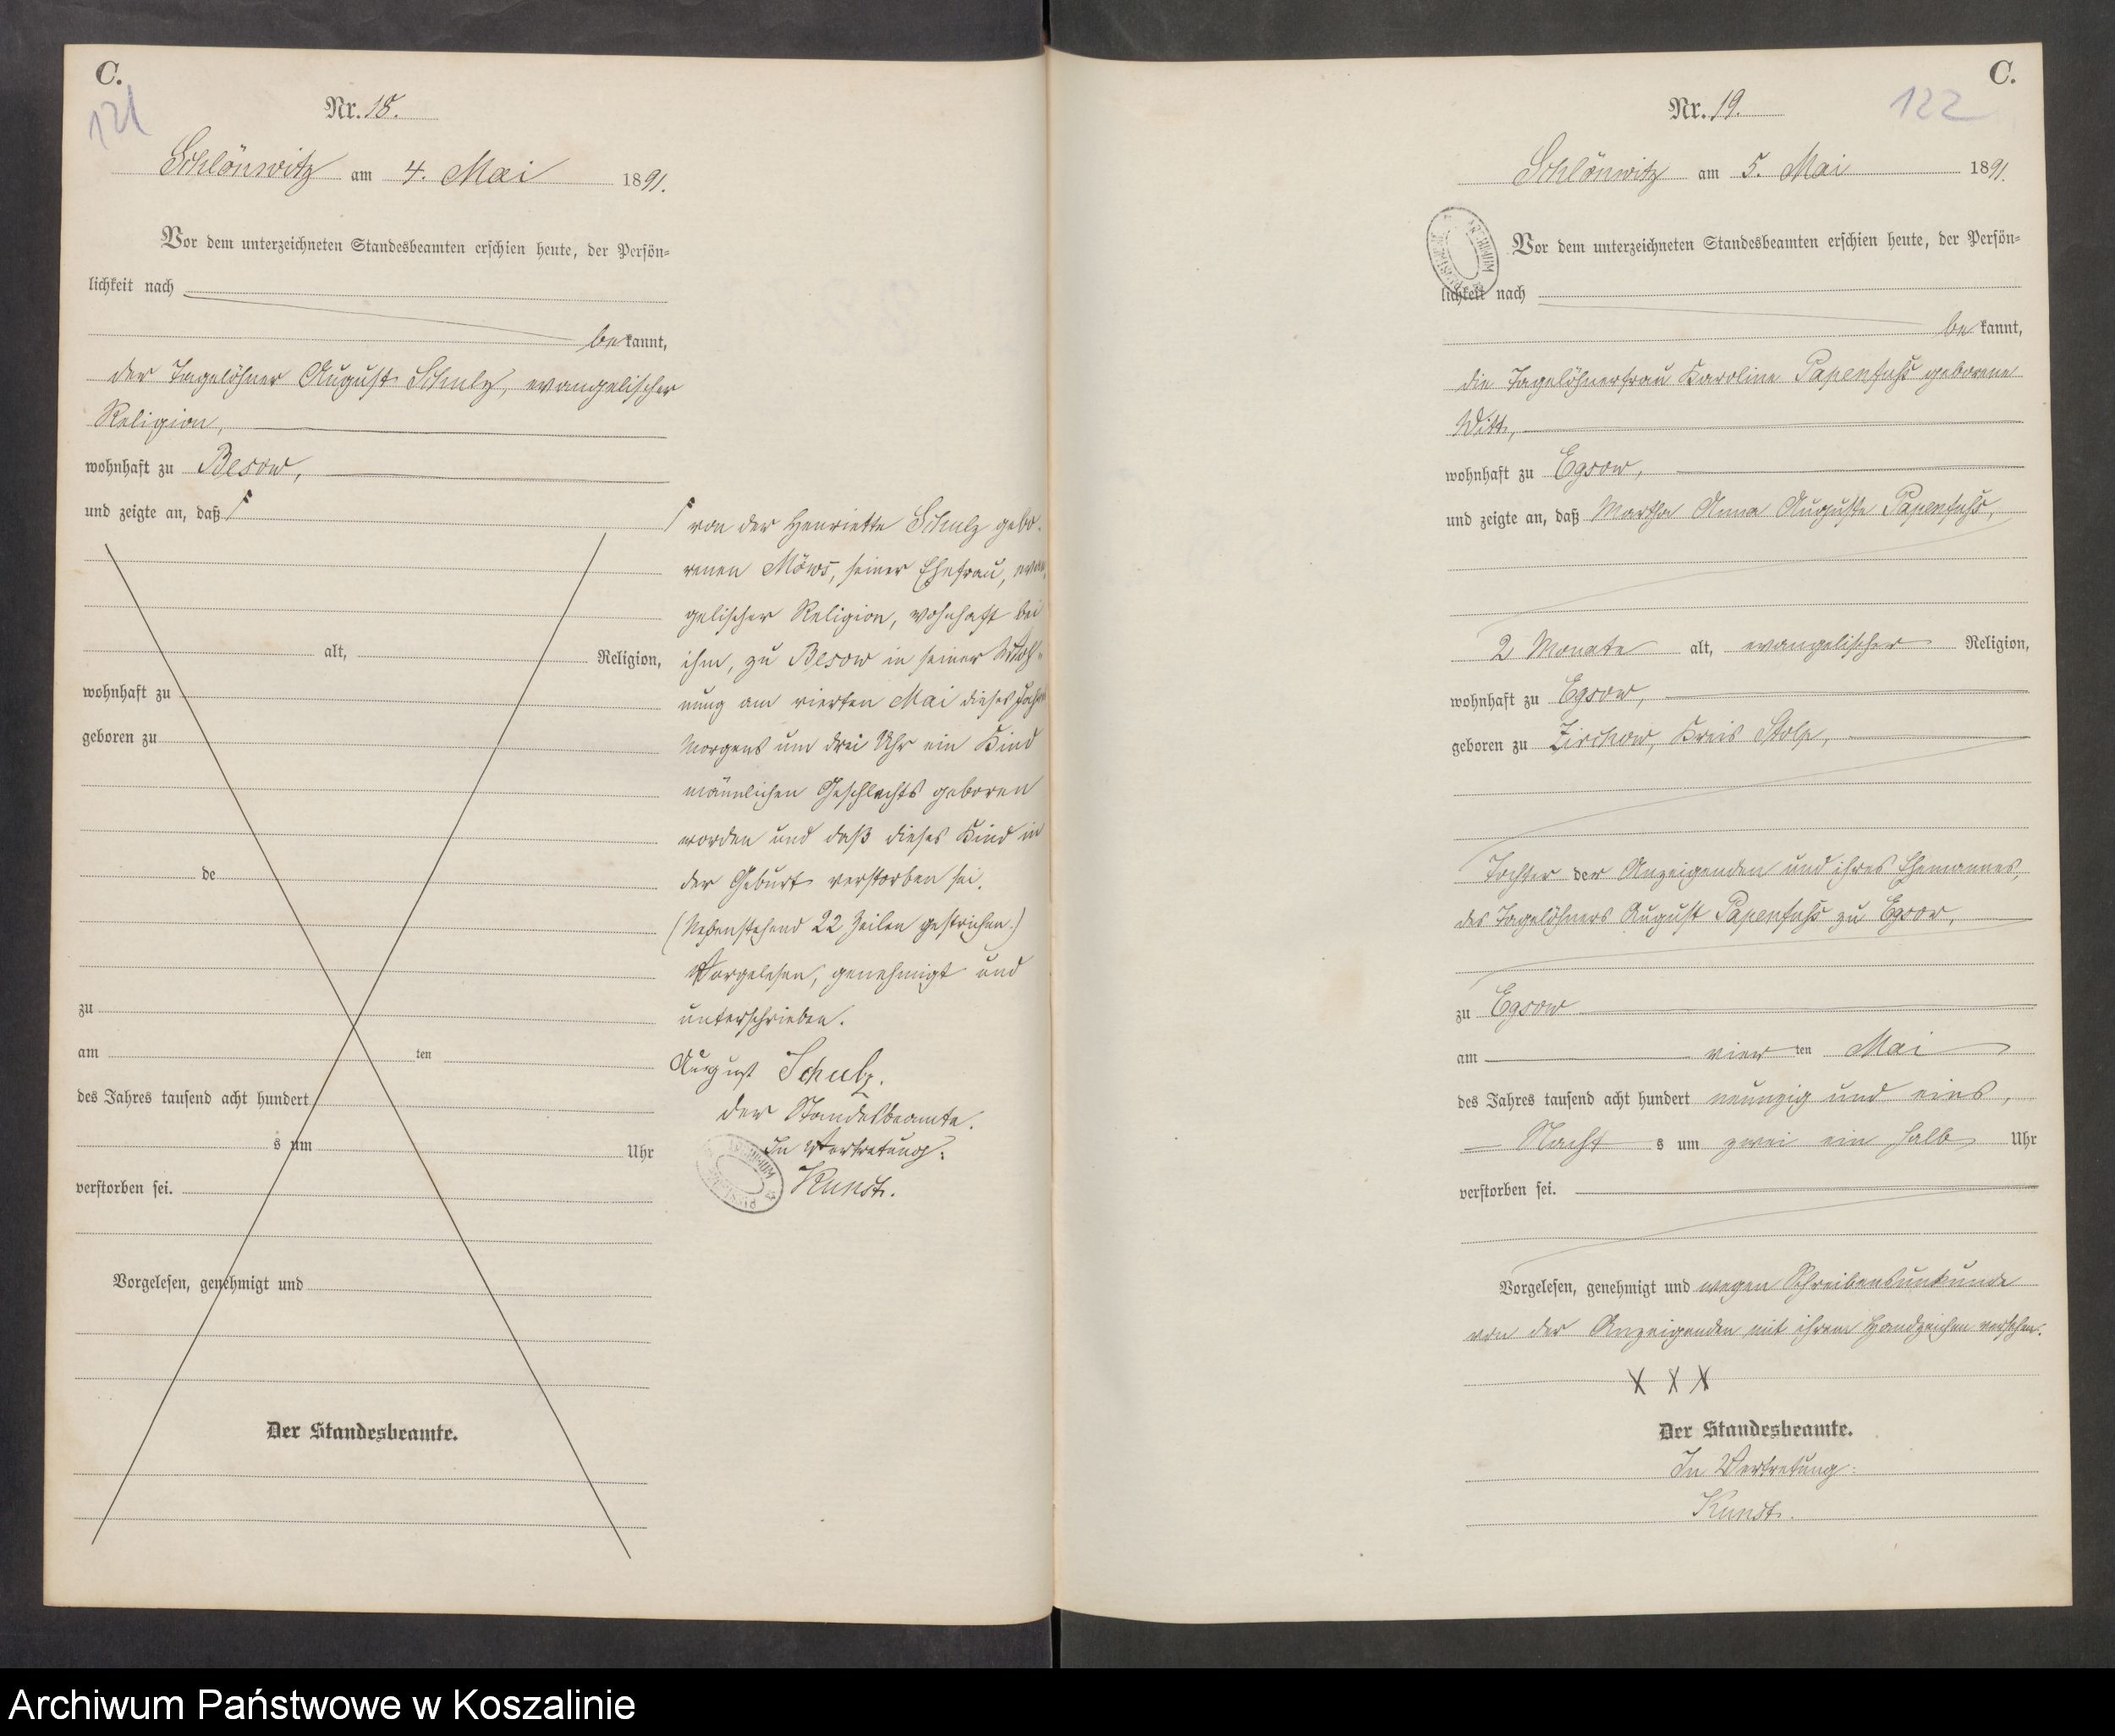 C.
121
Nr. 18.
Schlönwitz am 4. Mai 1891.
Vor dem unterzeichneten Standesbeamten erschien heute, der Persön=
lichkeit nach
bekannt,
der Tagelöhner August Schulz, evangelischer
Religion,
wohnhaft zu Besow,
und zeigte an, daß
alt, Religion,
wohnhaft zu
geboren zu
de
zu
am ten
des Jahres tausend acht hundert
s um Uhr
verstorben sei.
Vorgelesen, genehmigt und
Der Standesbeamte.
von der Henriette Schulz gebo-
renen Möws, seiner Ehefrau, evan-
gelischer Religion, wohnhaft bei
ihm, zu Besow in seiner Woh-
nung am vierten Mai dieses Jahres
Morgens um drei Uhr ein Kind
männlichen Geschlechts geboren
worden und daß dieses Kind in
der Geburt verstorben sei.
(Nebenstehend 22 Zeilen gestrichen.)
Vorgelesen, genehmigt und
unterschrieben.
August Schulz.
Der Standesbeamte.
In Vertretung:
Kunst.
C.
122
Nr. 19.
Schlönwitz am 5. Mai 1891.
Vor dem unterzeichneten Standesbeamten erschien heute, der Persön=
lichkeit nach
bekannt,
die Tagelöhnerfrau Karoline Papenfuß geborene
Witt,
wohnhaft zu Egsow,
und zeigte an, daß Martha Anna Auguste Papenfuß,
2 Monate alt, evangelischer Religion,
wohnhaft zu Egsow,
geboren zu Zirchow, Kreis Stolp,
Tochter der Anzeigenden und ihres Ehemannes,
des Tagelöhners August Papenfuß zu Egsow,
zu Egsow
am vierten Mai
des Jahres tausend acht hundert neunzig und eins,
Nachts um zwei ein halb Uhr
verstorben sei.
Vorgelesen, genehmigt und wegen Schreibensunkunde
von der Anzeigenden mit ihrem Handzeichen versehen.
X X X
Der Standesbeamte.
In Vertretung:
Kunst.
Archiwum Państwowe w Koszalinie